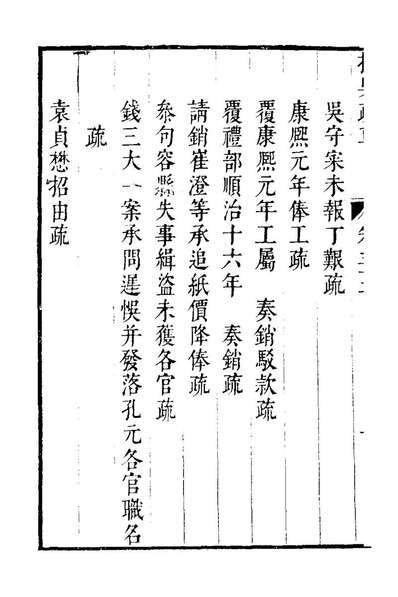 吳守寀未報丁艱疏
康熙元年俸工疏
覆康熙元年工屬　奏銷駁款疏
覆禮部順治十六年　奏銷疏
請銷崔澄等承追紙價降俸疏
叅句容縣失事緝盜未獲各官疏
錢三大一案承問遲悞并發落孔元各官職名
疏
袁貞懋招由疏